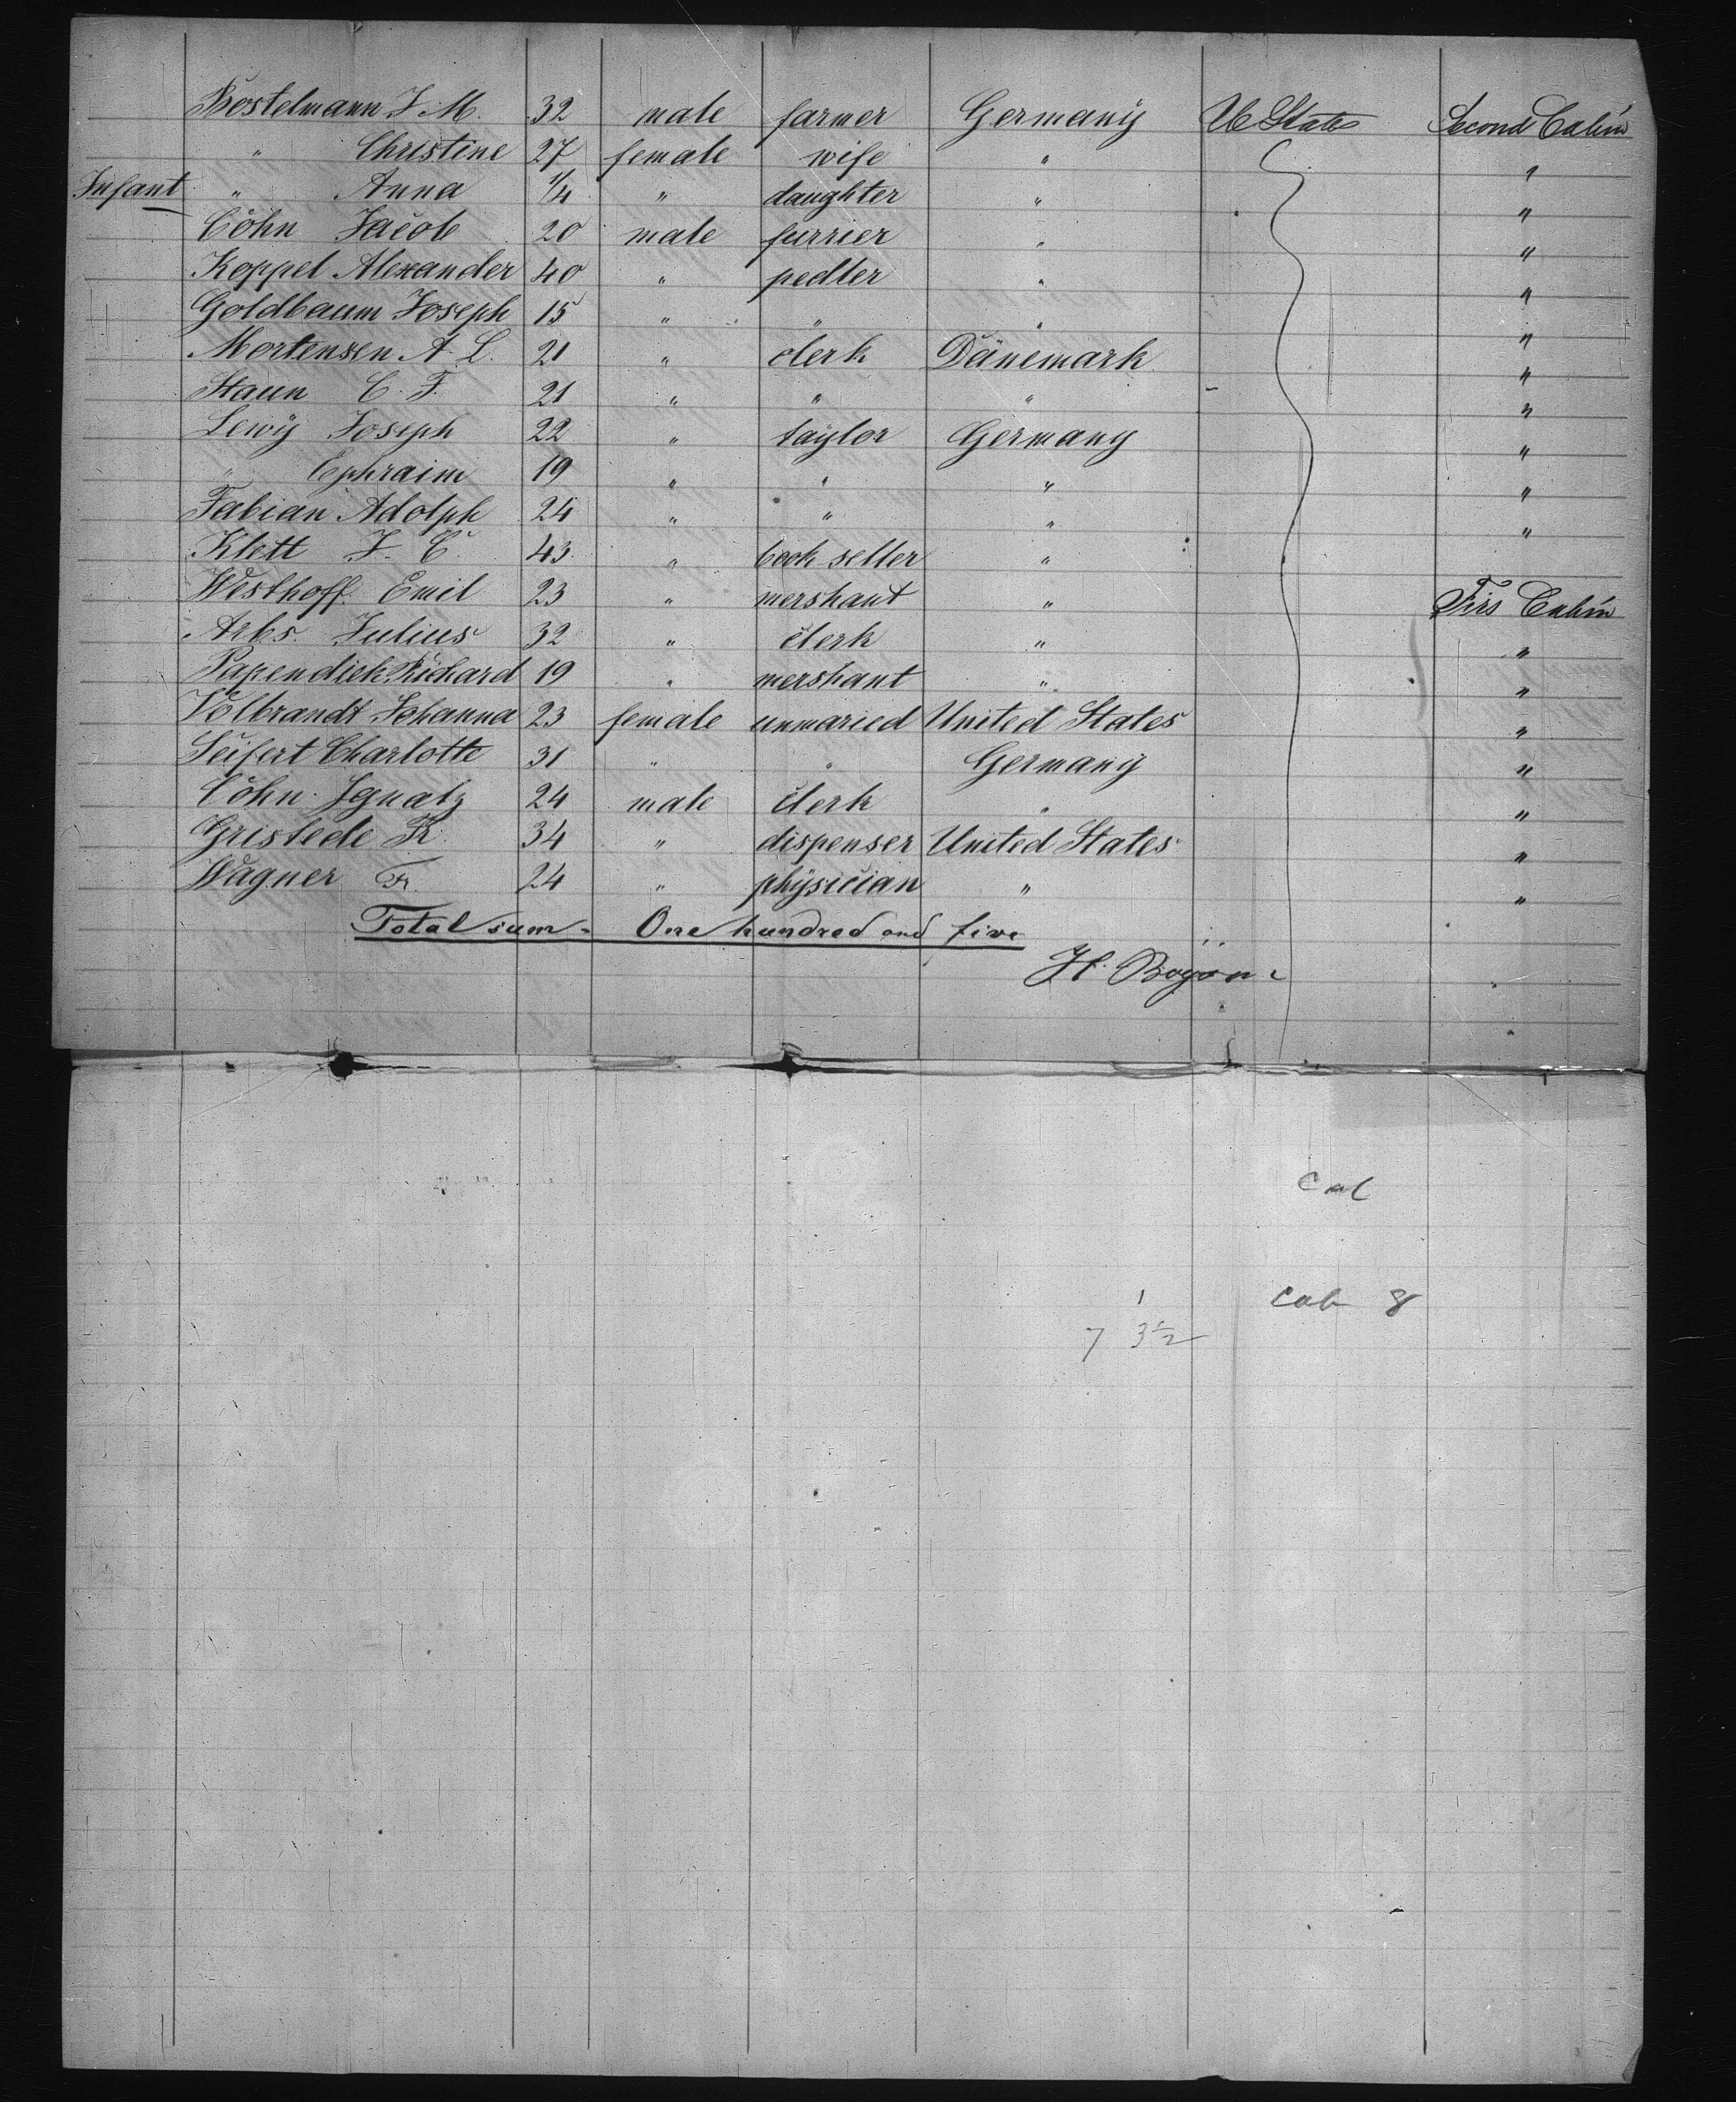 Bostelmann J. M. 32 male farmer Germany U States Second Cabin
" Christine 27 female wife " "
Infant " Anna 1/4 " daughter " "
Cohn Jacob 20 male furrier " "
Koppel Alexander 40 " pedler " "
Goldbaum Joseph 15 " " " "
Mortensen A. L. 21 " clerk Dänemark "
Staun C. F. 21 " " " "
Lewy Joseph 22 " taylor Germany "
" Ephraim 19 " " " "
Fabian Adolph 24 " " " "
Klett J. C. 43 " book seller "
Westhoff Emil 23 " mershant " Firs Cabin
Arbs. Julius 32 " clerk " "
Papendick Richard 19 " mershant " "
Volbrandt Johanna 23 female unmaried United States "
Seifert Charlotte 31 " " Germany "
Cohn Ignatz 24 male clerk " "
Gristede Fr. 34 " dispenser United States "
Wagner Fr. 24 " physician " "
Total sum - One hundred and five
H.
Cal
1 Cab 8
7 3 1/2